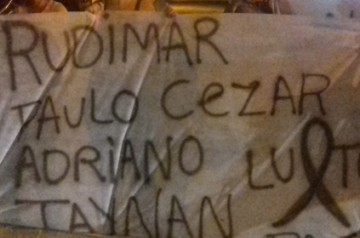 RUDIMAR
PAULO CeZAR
ADRiANO LUTO
TAYNAN